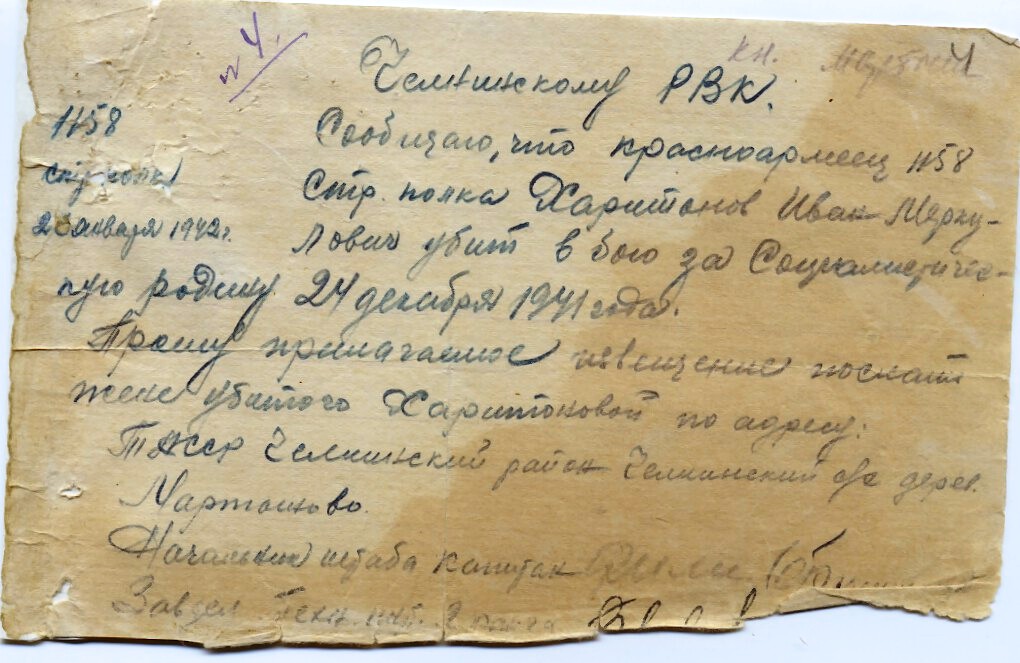 № 4.
кн.
Челнинскому РВК.
1158
Сообщаю, что красноармеец 1158
стр. полка
Стр. полка Харитонов Иван Мерку-
января 1942 г.
лович убит в бою за Социалистичес-
кую родину 24 декабря 1941 года.
Прошу прилагаемое извещение послать
жене убитого Харитоновой по адресу:
ТАССР Челнинский район Челнинский с/с дерев.
Мартыново
Начальник штаба капитан
Завдел. техн. инт. 2 ранга